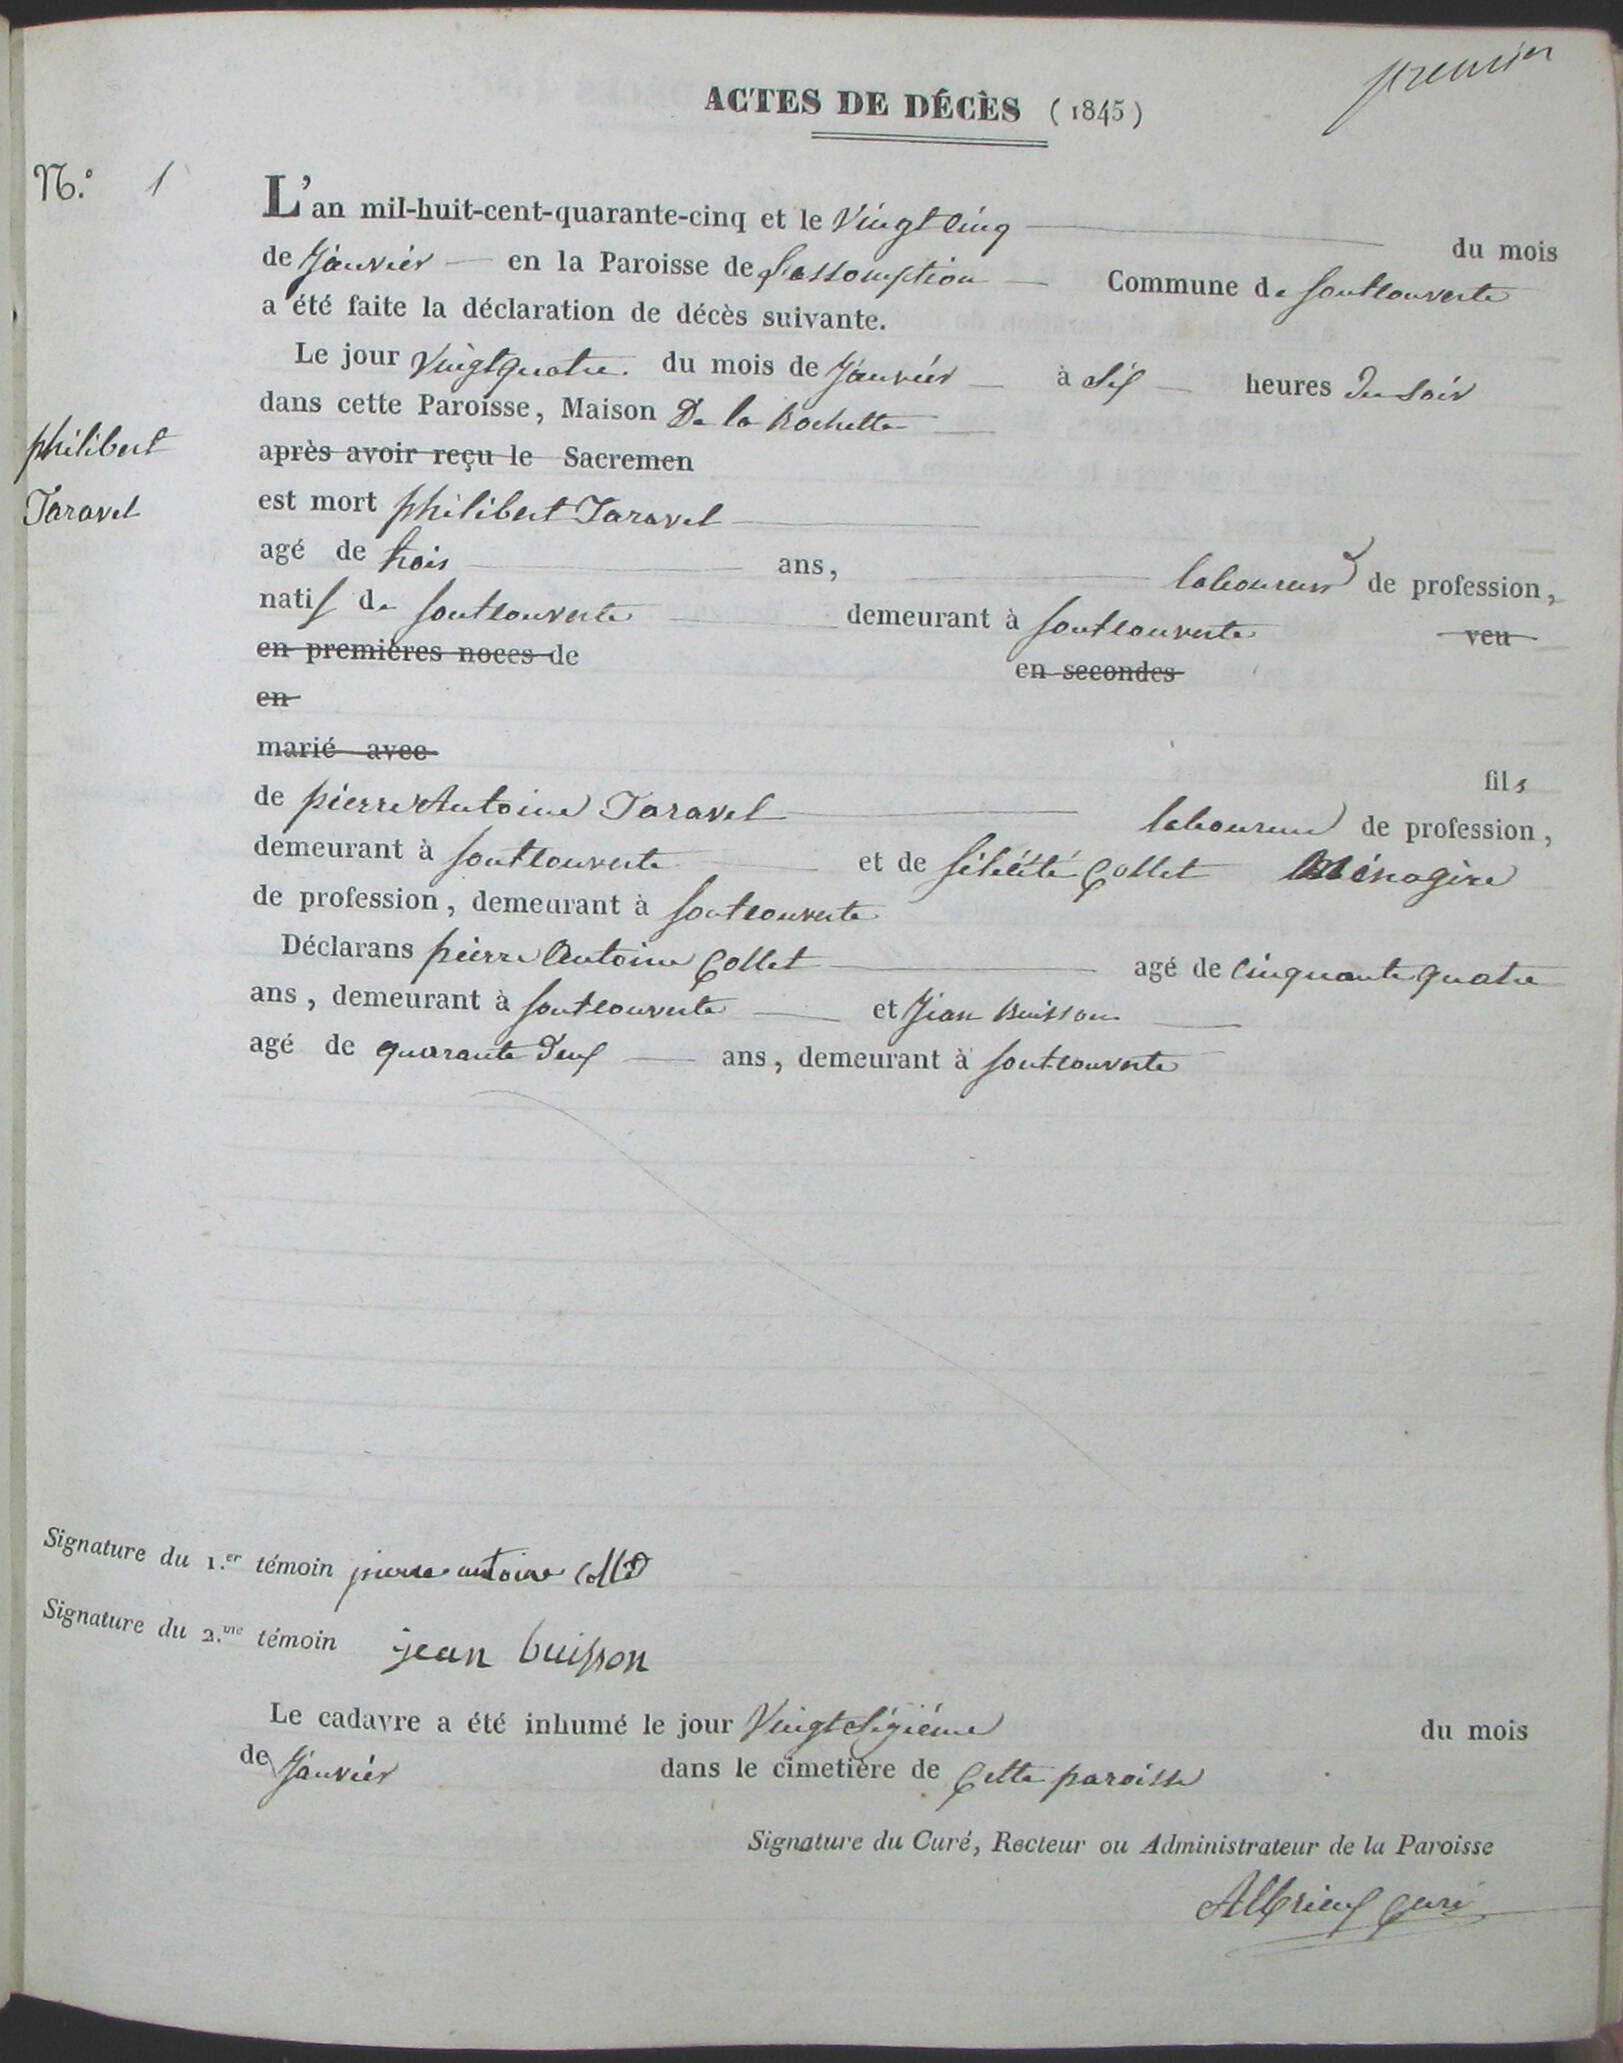 premier
ACTES DE DÉCÈS (1845)
N.° 1
L'an mil-huit-cent-quarante-cinq et le Vingt cinq du mois
de Janvier en la Paroisse de Lassomption Commune de fontcouverte
a été faite la déclaration de décès suivante.
Le jour Vingt quatre du mois de Janvier à Six heures Du Soir
dans cette Paroisse, Maison De la Rochette
philibert
Taravel
après avoir reçu le Sacremen
est mort philibert Taravel
agé de trois ans, laboureur de profession,
natif de fontcouverte demeurant à fontcouverte veu
en premières noces de en secondes
en
marié avec fils
de pierre Antoine Taravel laboureur de profession,
demeurant à fontcouverte et de félicité Collet Ménagère
de profession, demeurant à fontcouverte
Déclarans pierre Antoine Collet agé de Cinquante quatre
ans, demeurant à fontcouverte et Jean Buisson
agé de quarante Deux ans, demeurant à fontcouverte
Signature du 1.er témoin pierre antoine collet
Signature du 2.me témoin jean buisson
Le cadavre a été inhumé le jour Vingt Sixième du mois
de Janvier dans le cimetière de Cette paroisse
Signature du Curé, Recteur ou Administrateur de la Paroisse
Albrieux Curé